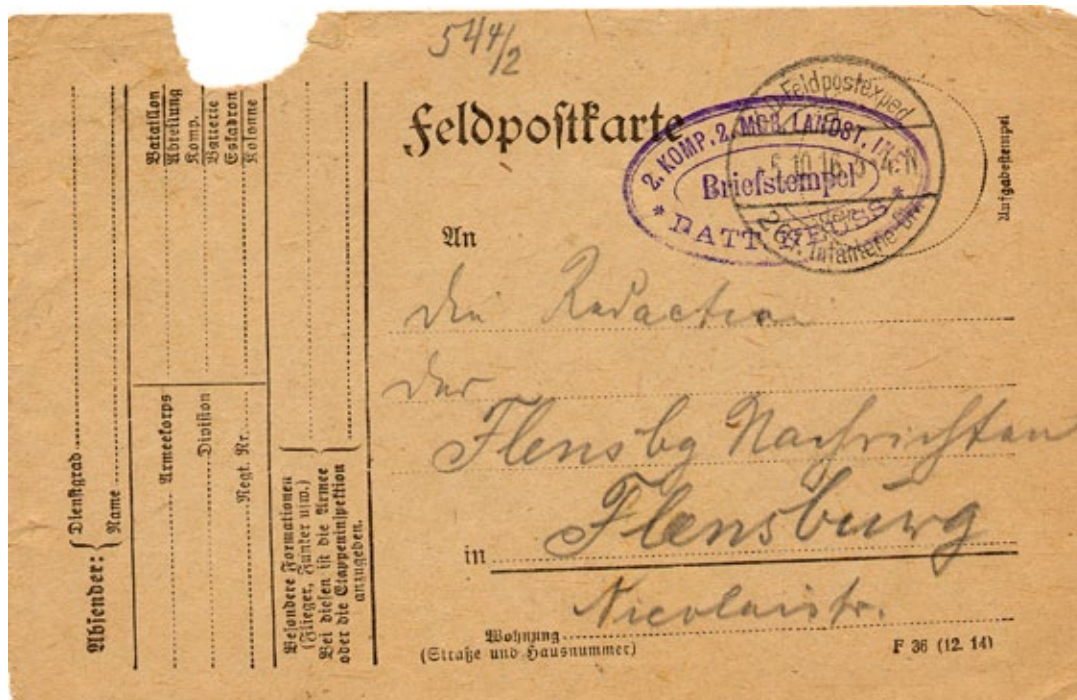 544/2
Feldpostkarte
2. KOMP. 2. MOB. LANDST. INF.
Briefstempel
* BATT. NEUSS *
Feldpostexped
5.10.16.
Infanterie-Div.
Aufgabestempel
An
die Redaction
der
Flensbg Nachrichten
in Flensburg
Nicolaistr.
Wohnung
(Straße und Hausnummer)
F 36 (12. 14)
Absender:
Dienstgrad
Name
Bataillon
Abteilung
Komp.
Batterie
Eskadron
Kolonne
Armeekorps
Division
Regt. Nr.
Besondere Formationen
(Flieger, Funker usw.)
Bei diesen ist die Armee
oder die Etappeninspektion
anzugeben.